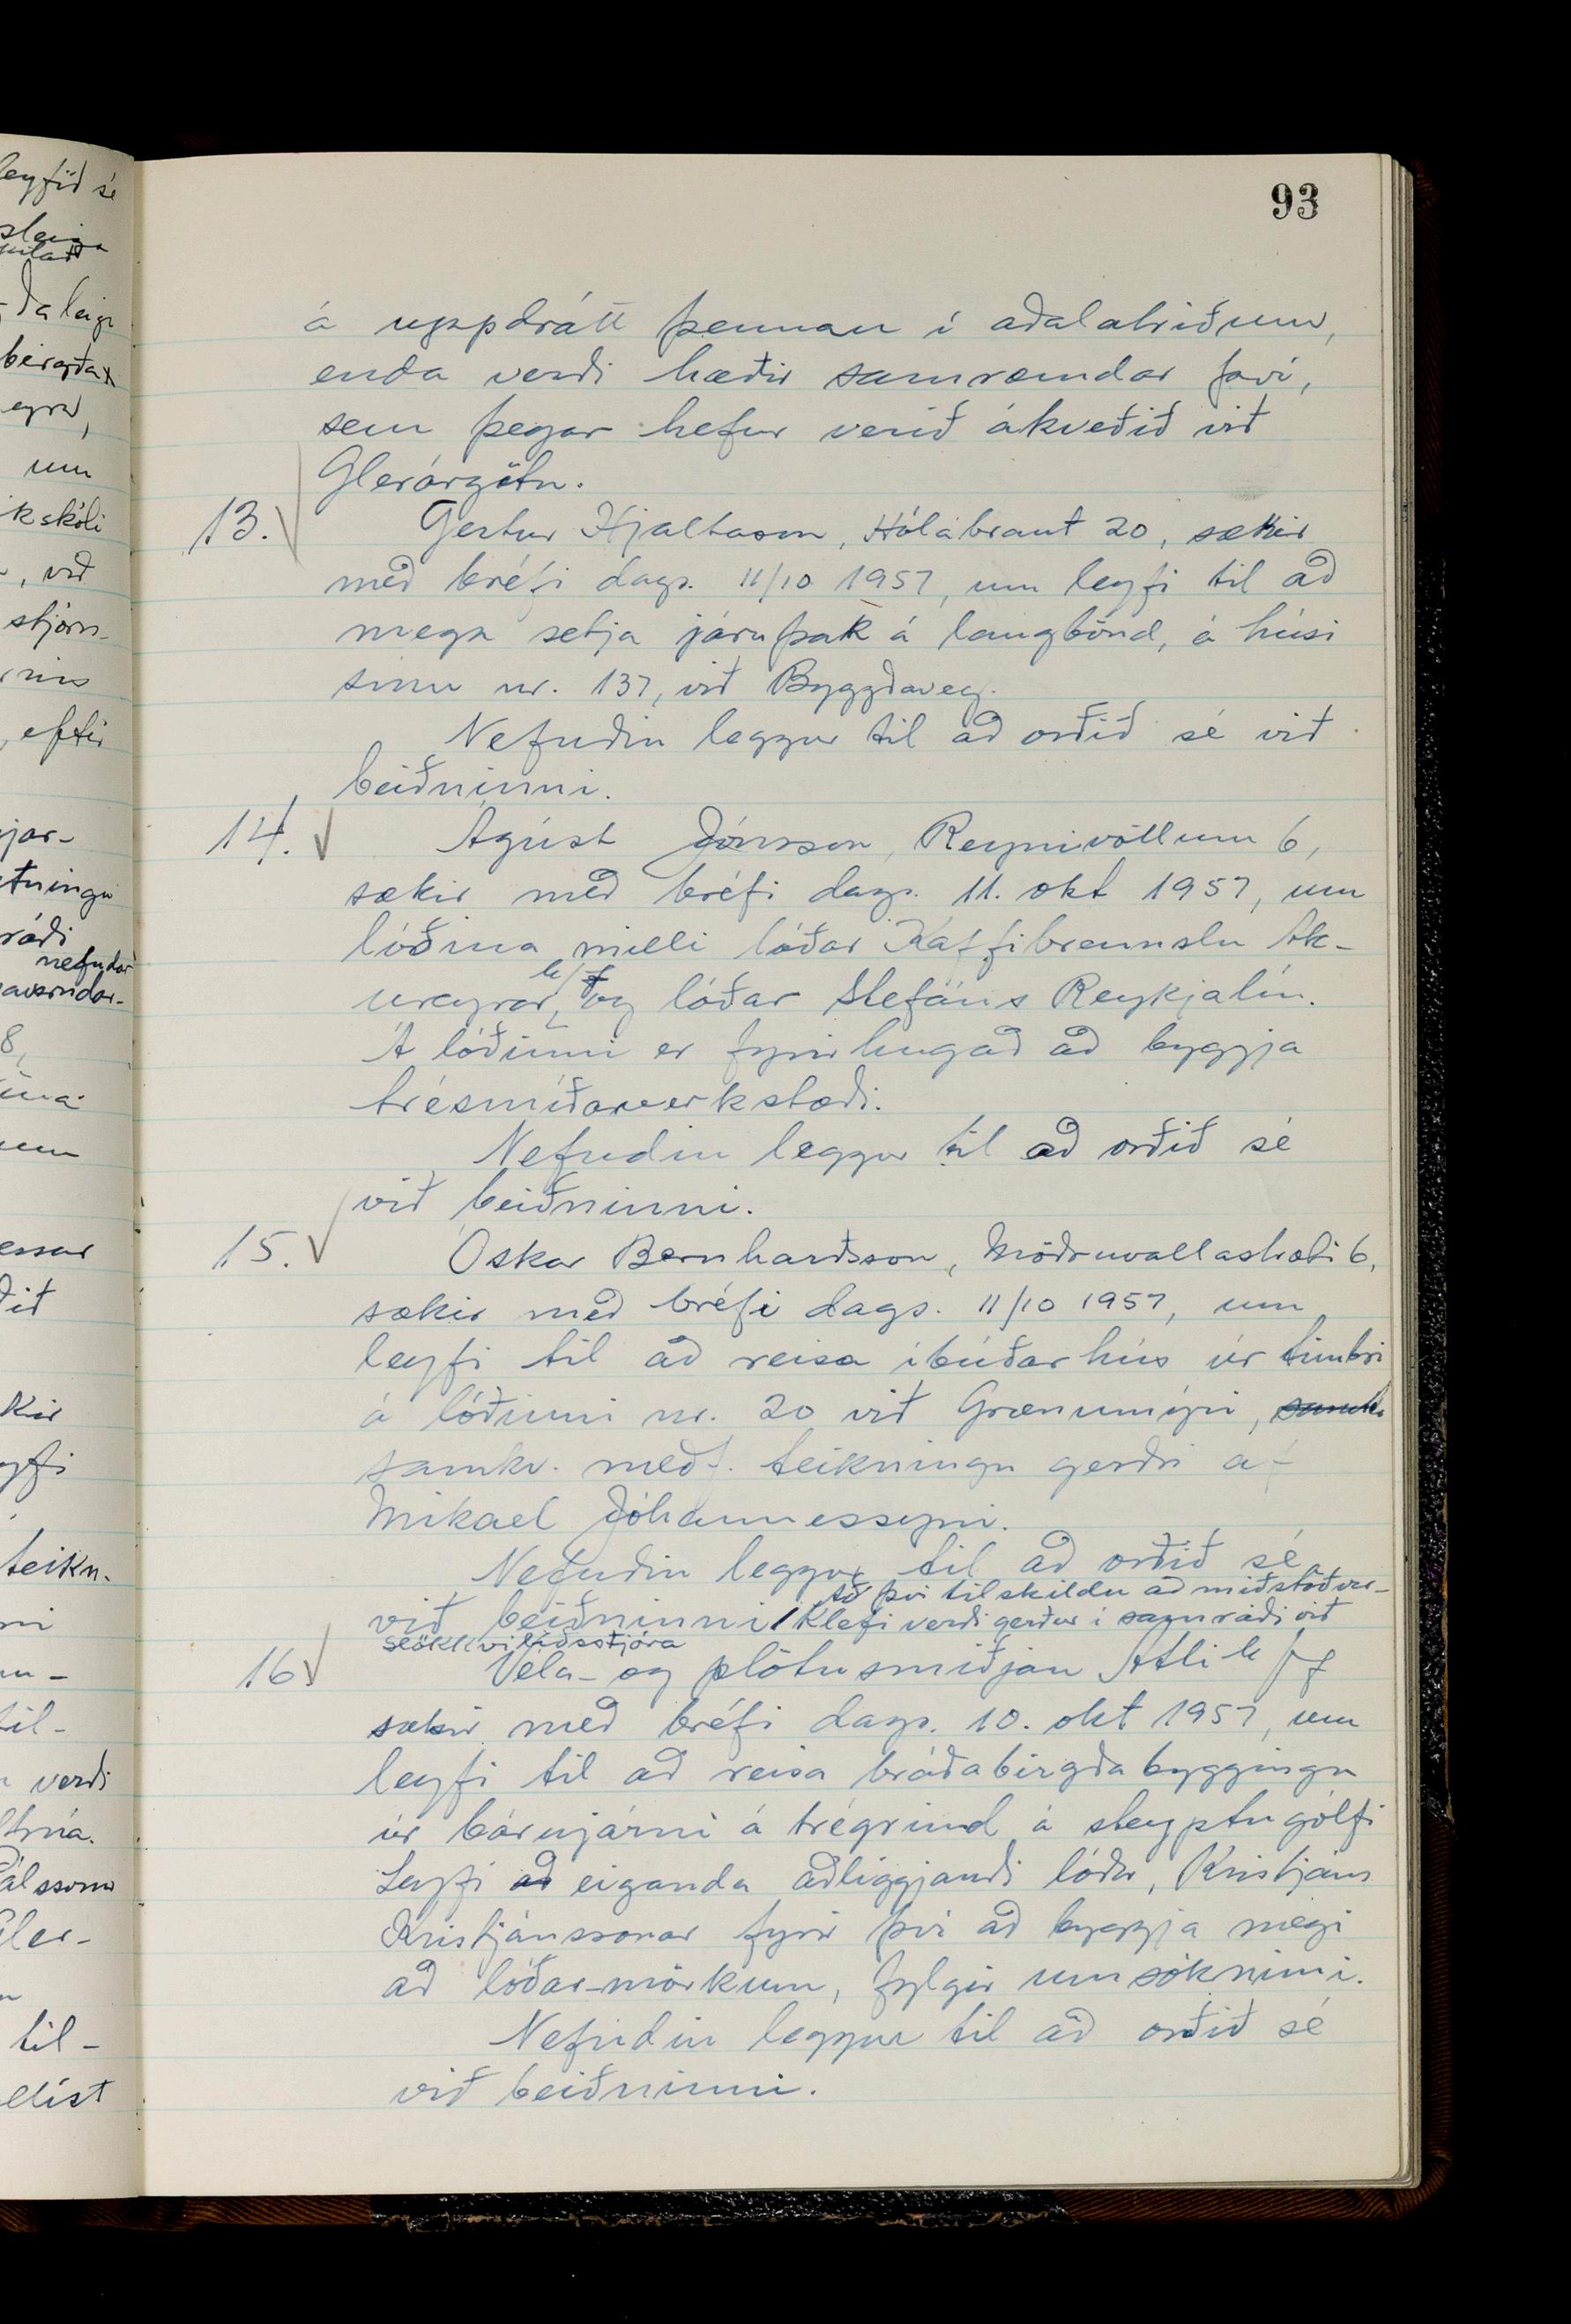 93
á uppdrátt þennan í aðalatriðum,
enda verði hæðir samræmdar því,
sem þegar hefur verið ákveðið við
Glerárgötu.
13. Gestur Hjaltason, Hólabraut 20, sækir
með bréfi dags. 11/10 1957, um leyfi til að
mega setja járnþak á langbönd, á húsi
sínu nr. 137, við Byggðaveg.
Nefndin leggur til að orðið sé við
beiðninni.
14. Ágúst Jónsson, Reynivöllum 6,
sækir með bréfi dags. 11. okt 1957, um
lóðina milli lóðar Kaffibrennslu Ak-
ureyrar h/f og lóðar Stefáns Reykjalín.
Á lóðinni er fyrirhugað að byggja
trésmíðaverkstæði.
Nefndin leggur til að orðið sé
við beiðninni.
15. Óskar Bernharðsson, Möðruvallastræti 6,
sækir með bréfi dags. 11/10 1957, um
leyfi til að reisa íbúðarhús úr timbri
á lóðinni nr. 20 við Grænumýri,
samkv. meðf. teikningu gerðri af
Mikael Jóhannessyni.
Nefndin leggur til að orðið sé
við beiðninni Að því tilskildu að miðstöðvar-
klefi verði gerður í samráði við
slökkviliðsstjóra
16 Véla- og plötusmiðjan Atli h/f
sækir með bréfi dags. 10. okt 1957, um
leyfi til að reisa bráðabirgðabyggingu
úr bárujárni á trégrind á steyptu gólfi
Leyfi eiganda aðliggjandi lóðar, Kristjáns
Kristjánssonar fyrir því að byggja megi
að lóðar-mörkum, fylgir umsókninni.
Nefndin leggur til að orðið sé
við beiðninni.